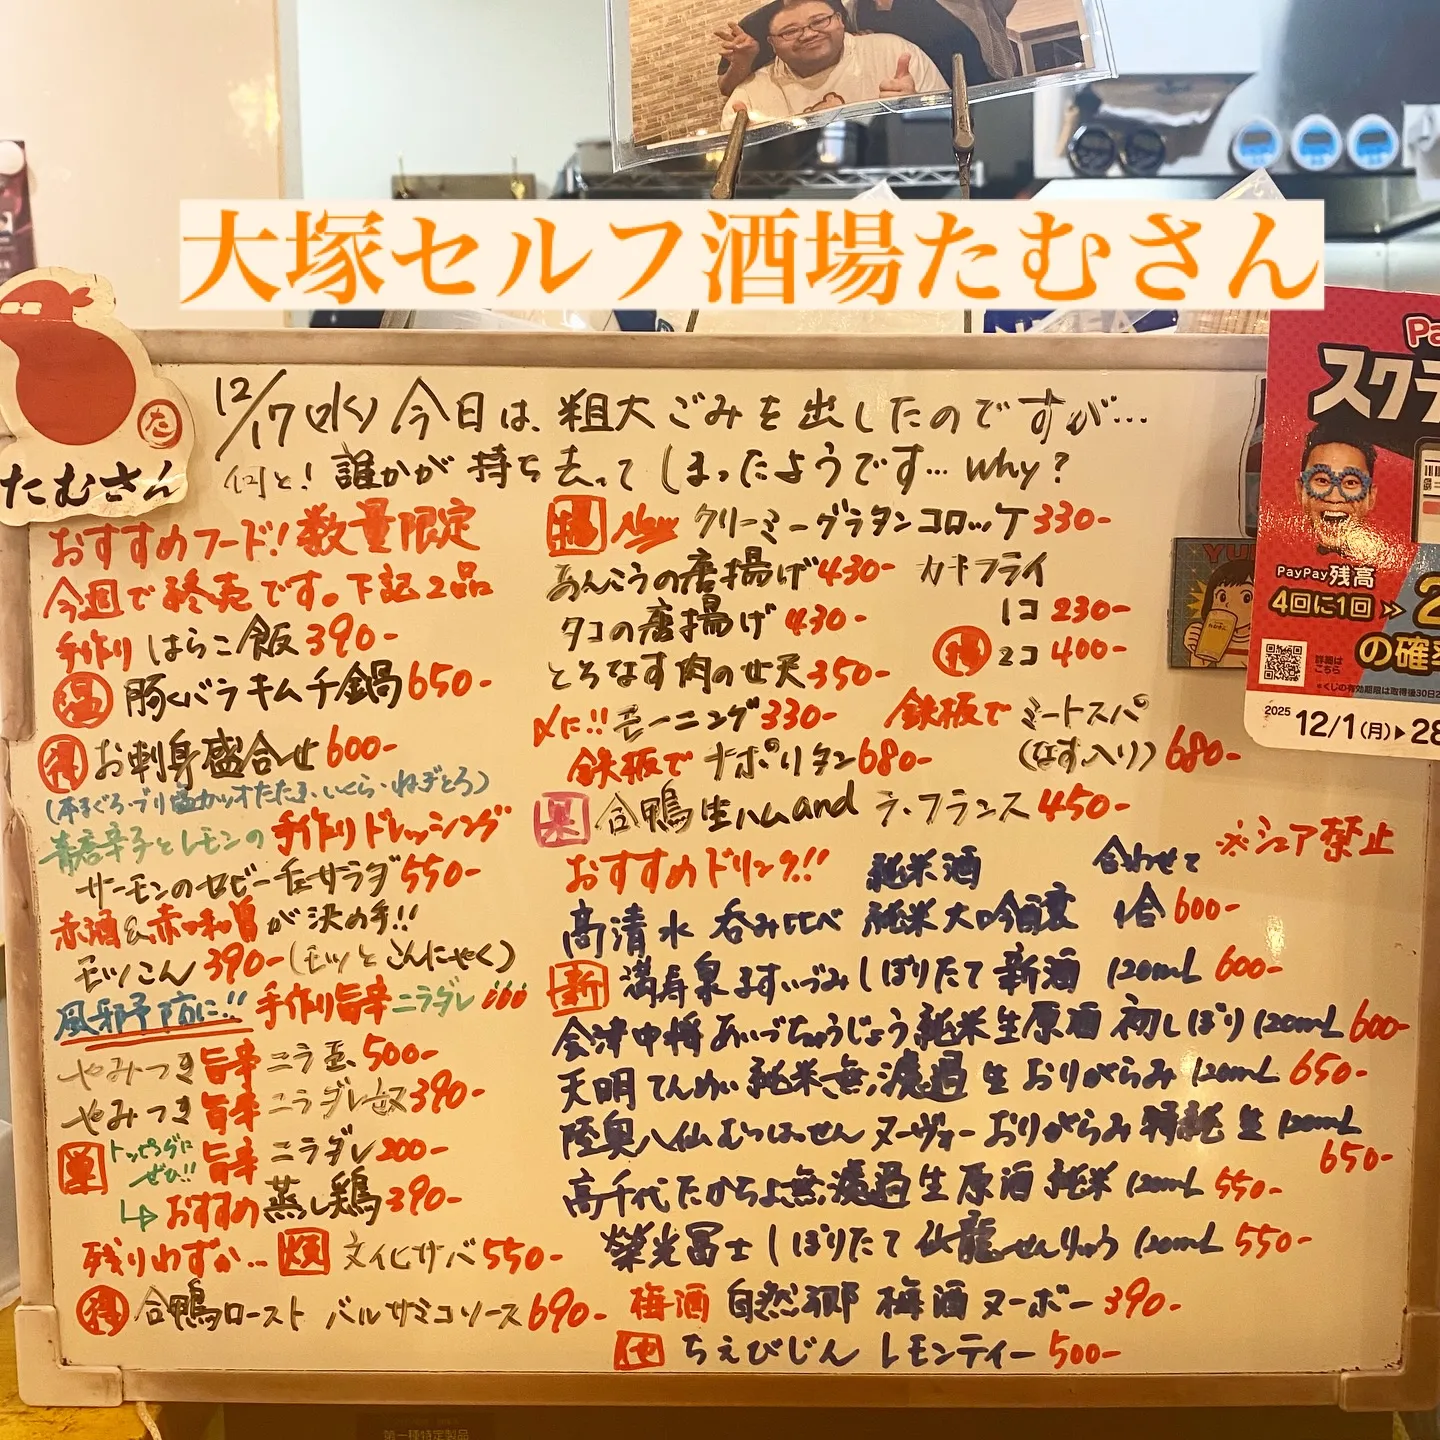 大塚セルフ酒場たむさん
た
たむさん
12/17(水) 今日は、粗大ごみを出したのですが…
何と! 誰かが持ち去ってしまったようです… why?
おすすめフード! 数量限定
今週で終売です。下記2品
手作り はらこ飯 390-
温 豚バラキムチ鍋 650-
得 お刺身盛合せ 600-
(本まぐろ・ブリ・塩カツオたたき・いくら・ねぎとろ)
青唐辛子とレモンの 手作りドレッシング
サーモンのセビーチェサラダ 550-
赤酒&赤味噌が決め手!!
モツこん 390- (モツとこんにゃく)
風邪予防に!! 手作り旨辛ニラダレ
やみつき旨辛ニラ玉 500-
やみつき旨辛ニラダレ奴 390-
単 トッピングにぜひ!! 旨辛ニラダレ 200-
おすすめ 蒸し鶏 390-
残りわずか… 焼 文化サバ 550-
得 合鴨ロースト バルサミコソース 690-
揚 New クリーミーグラタンコロッケ 330-
あんこうの唐揚げ 430- カキフライ
タコの唐揚げ 430- 1コ 230-
とろなす肉のせ天 350- 得 2コ 400-
〆に!! モーニング 330- 鉄板で ミートスパ
鉄板で ナポリタン 680- (なす入り) 680-
果 合鴨生ハム and ラ・フランス 450-
おすすめドリンク!! 純米酒 合わせて ※シェア禁止
高清水 呑み比べ 純米大吟醸 1合 600-
新 満寿泉 ますいづみ しぼりたて 新酒 120mL 600-
会津中将 あいづちゅうじょう 純米生原酒 初しぼり 120mL 600-
天明 てんめい 純米無濾過生 おりがらみ 120mL 650-
陸奥八仙 むつはっせん ヌーヴォー おりがらみ 特純 生 120mL
650-
高千代 たかちよ 無濾過生原酒 純米 120mL 550-
榮光冨士 しぼりたて 仙龍 せんりゅう 120mL 550-
梅酒 自然郷 梅酒ヌーボー 390-
ちえびじん レモンティー 500-
スクラ
PayPay残高
4回に1回
の確率
詳細は
こちら
2025 12/1(月)▶28
第一種特定製品